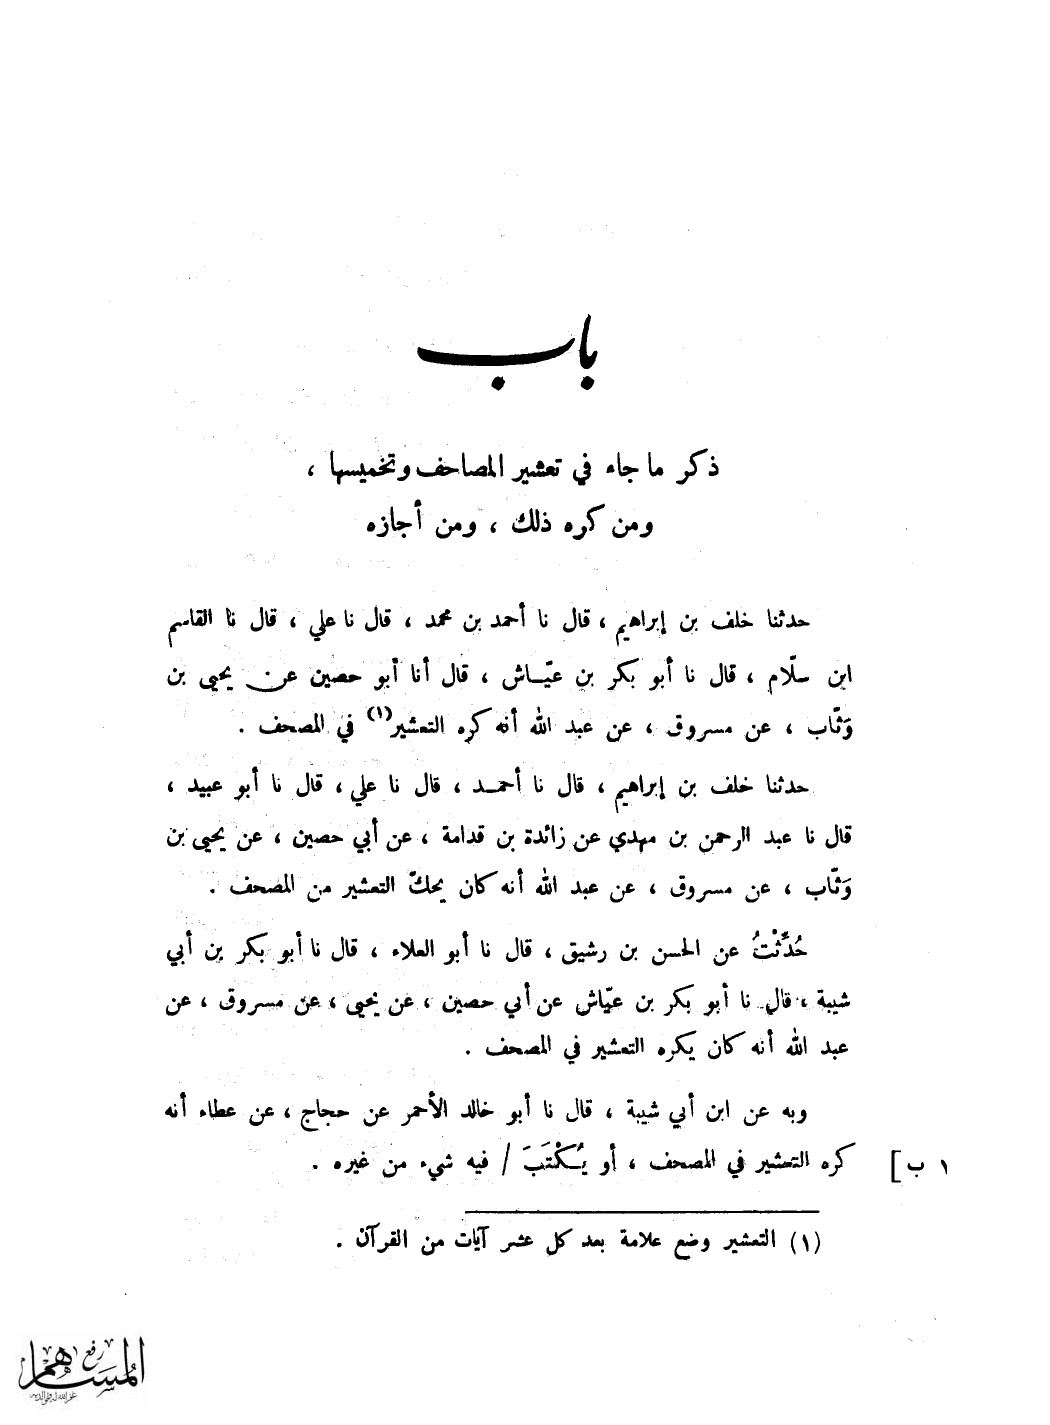 باب
ذكر ما جاء في تعشير المصاحف وتخميسها ،
ومن كره ذلك ، ومن أجازه
حدثنا خلف بن إبراهيم ، قال نا أحمد بن محمد ، قال نا علي ، قال نا القاسم
ابن سلّام ، قال نا أبو بكر بن عيّاش ، قال أنا أبو حصين عن يحيى بن
وَثّاب ، عن مسروق ، عن عبد الله أنه كره التعشير(١) في المصحف .
حدثنا خلف بن إبراهيم ، قال نا أحمد ، قال نا علي ، قال نا أبو عبيد ،
قال نا عبد الرحمن بن مهدي عن زائدة بن قدامة ، عن أبي حصين ، عن يحيى بن
وَثّاب ، عن مسروق ، عن عبد الله أنه كان يحكّ التعشير من المصحف .
حُدِّثْتُ عن الحسن بن رشيق ، قال نا أبو العلاء ، قال نا أبو بكر بن أبي
شيبة ، قال نا أبو بكر بن عيّاش عن أبي حصين ، عن يحيى ، عن مسروق ، عن
عبد الله أنه كان يكره التعشير في المصحف .
وبه عن ابن أبي شيبة ، قال نا أبو خالد الأحمر عن حجاج ، عن عطاء أنه
١ ب] كره التعشير في المصحف ، أو يُكْتَبَ / فيه شيء من غيره .
(١) التعشير وضع علامة بعد كل عشر آيات من القرآن .
رفع
المساهم